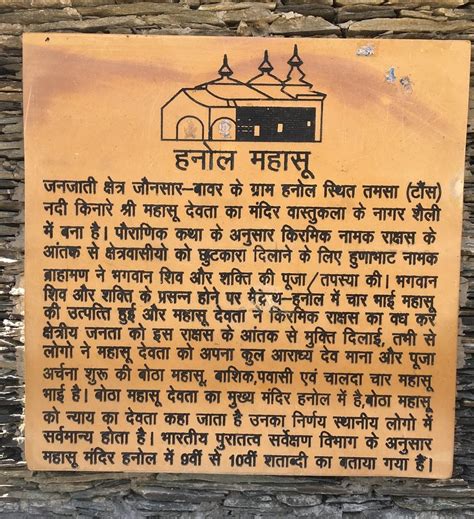 हनोल महासू
जनजाती क्षेत्र जौनसार–बावर के ग्राम हनोल स्थित तमसा (टौंस)
नदी किनारे श्री महासू देवता का मंदिर वास्तुकला के नागर शैली
में बना है। पौराणिक कथा के अनुसार किरमिक नामक राक्षस के
आंतक से क्षेत्रवासीयो को छुटकारा दिलाने के लिए हुणाभाट नामक
ब्राहमण ने भगवान शिव और शक्ति की पूजा/तपस्या की। भगवान
शिव और शक्ति के प्रसन्न होने पर –हनोल में चार भाई महासू
की उत्पत्ति हुई और महासू देवता ने किरमिक राक्षस का वध कर
क्षेत्रीय जनता को इस राक्षस के आंतक से मुक्ति दिलाई, तभी से
लोगो ने महासू देवता को अपना कुल आराध्य देव माना और पूजा
अर्चना शुरू की बोठा महासू, बाशिक,पवासी एवं चालदा चार महासू
भाई है। बोठा महासू देवता का मुख्य मंदिर हनोल में है,बोठा महासू
को न्याय का देवता कहा जाता है उनका निर्णय स्थानीय लोगो में
सर्वमान्य होता है। भारतीय पुरातत्व सर्वेक्षण विभाग के अनुसार
महासू मंदिर हनोल में 9वीं से 10वीं शताब्दी का बताया गया है।